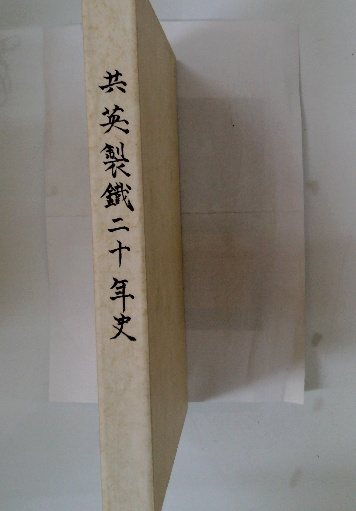 共英製鐵二十年史